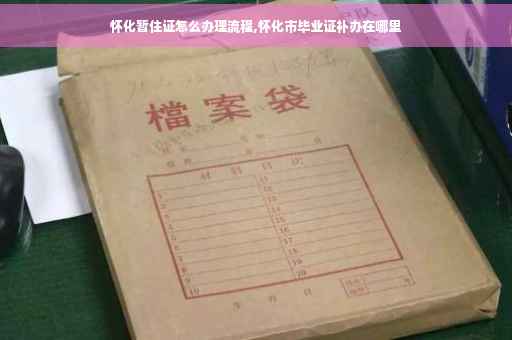 怀化暂住证怎么办理流程,怀化市毕业证补办在哪里
檔案袋
材料目次
1 11
2 12
3 13
4 14
5 15
6 16
7 17
8 18
9 19
10 20
年 月 日